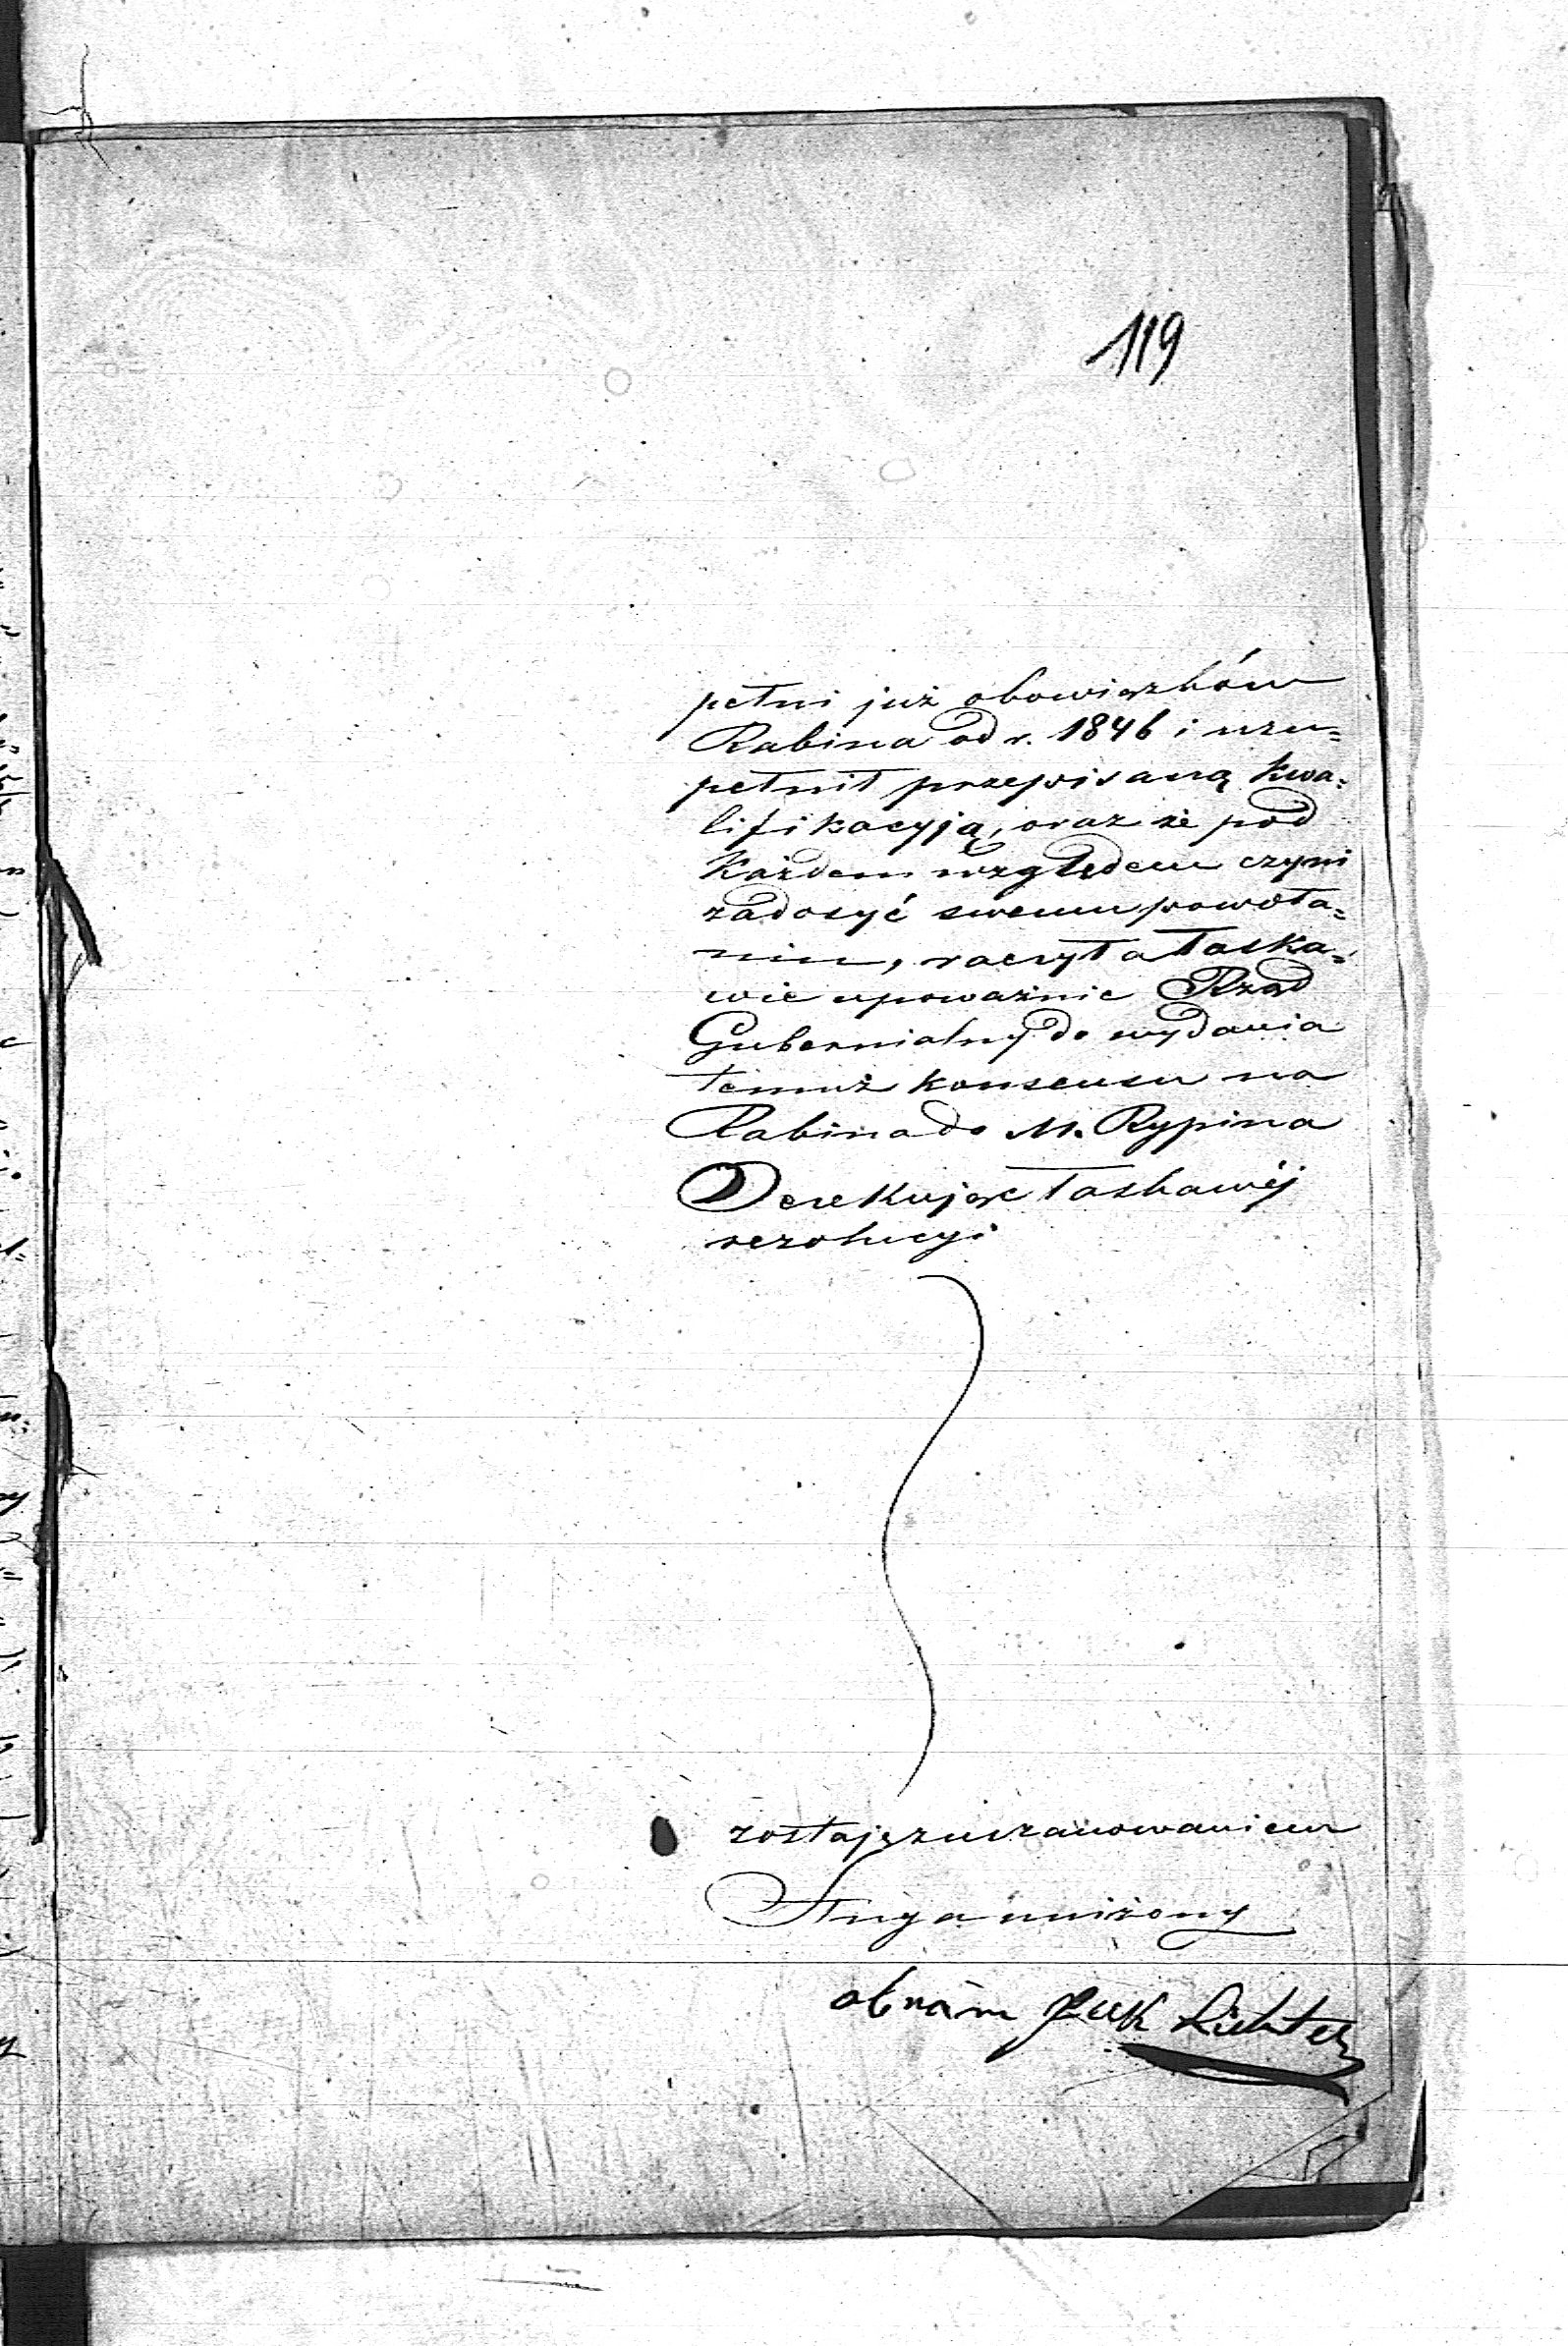 119
pełni już obowiązków
Rabina od r. 1846 i uzu=
pełnił przepisaną kwa=
lifikacyją, oraz że pod
Każdem względem czyni
zadosyć swemu powoła=
niu, raczyła łaska=
wie upoważnic Rząd
Gubernialny do wydania
temuż konsensu na
Rabina do M. Rypina
Oczekując łaskawéj
rezolucyi
zostaję z uszanowaniem
Sługa uniżony
abram Richter